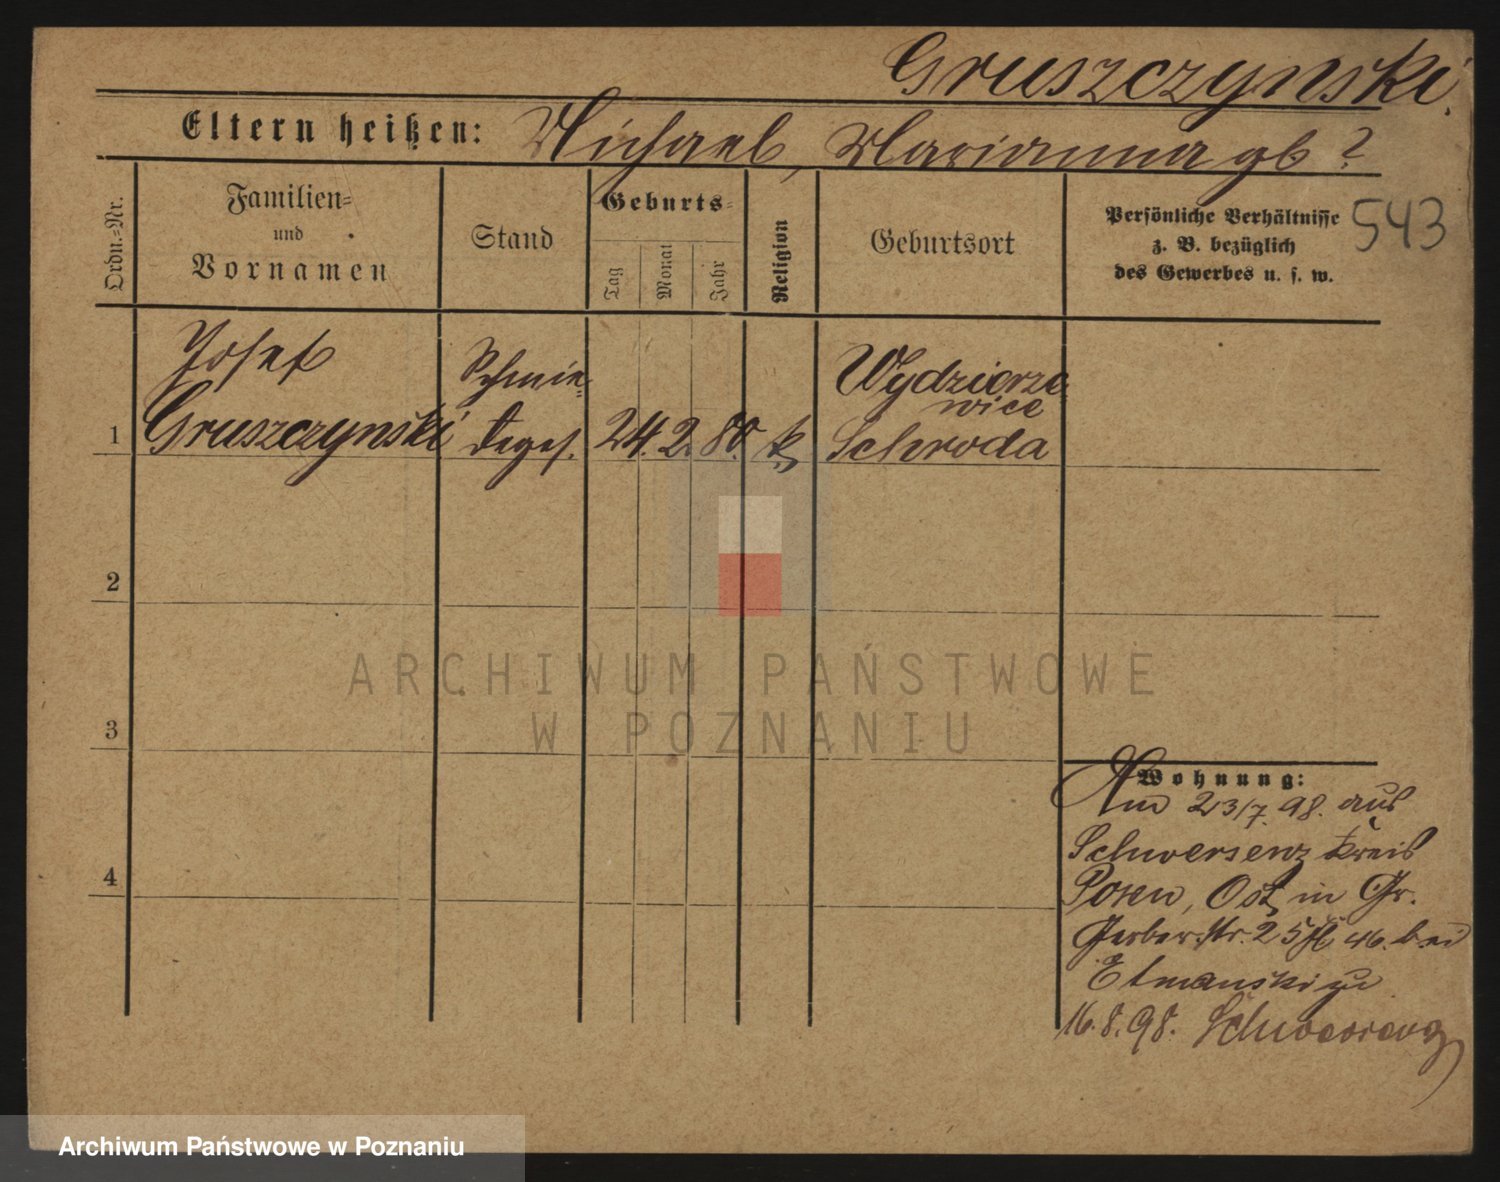 Gruszczynski.
Eltern heißen: Michael, Marianna gb ?
Ordn.-Nr.
Familien-
und
Vornamen
Stand
Geburts-
Tag
Monat
Jahr
Religion
Geburtsort
Persönliche Verhältnisse
z. B. bezüglich
des Gewerbes u. s. w.
543
Josef
Gruszczynski
Schmie=
deges.
24. 2. 80.
k
Wydzierze
wice
Schroda
1
2
3
4
ARCHIWUM PAŃSTWOWE
W POZNANIU
Wohnung:
Am 23/7. 98. aus
Schwersenz Kreis
Posen, Ost, in Gr.
Gerber Str. 25 46. bei
Etmanski zu
16.8.98. Schwersenz
Archiwum Państwowe w Poznaniu